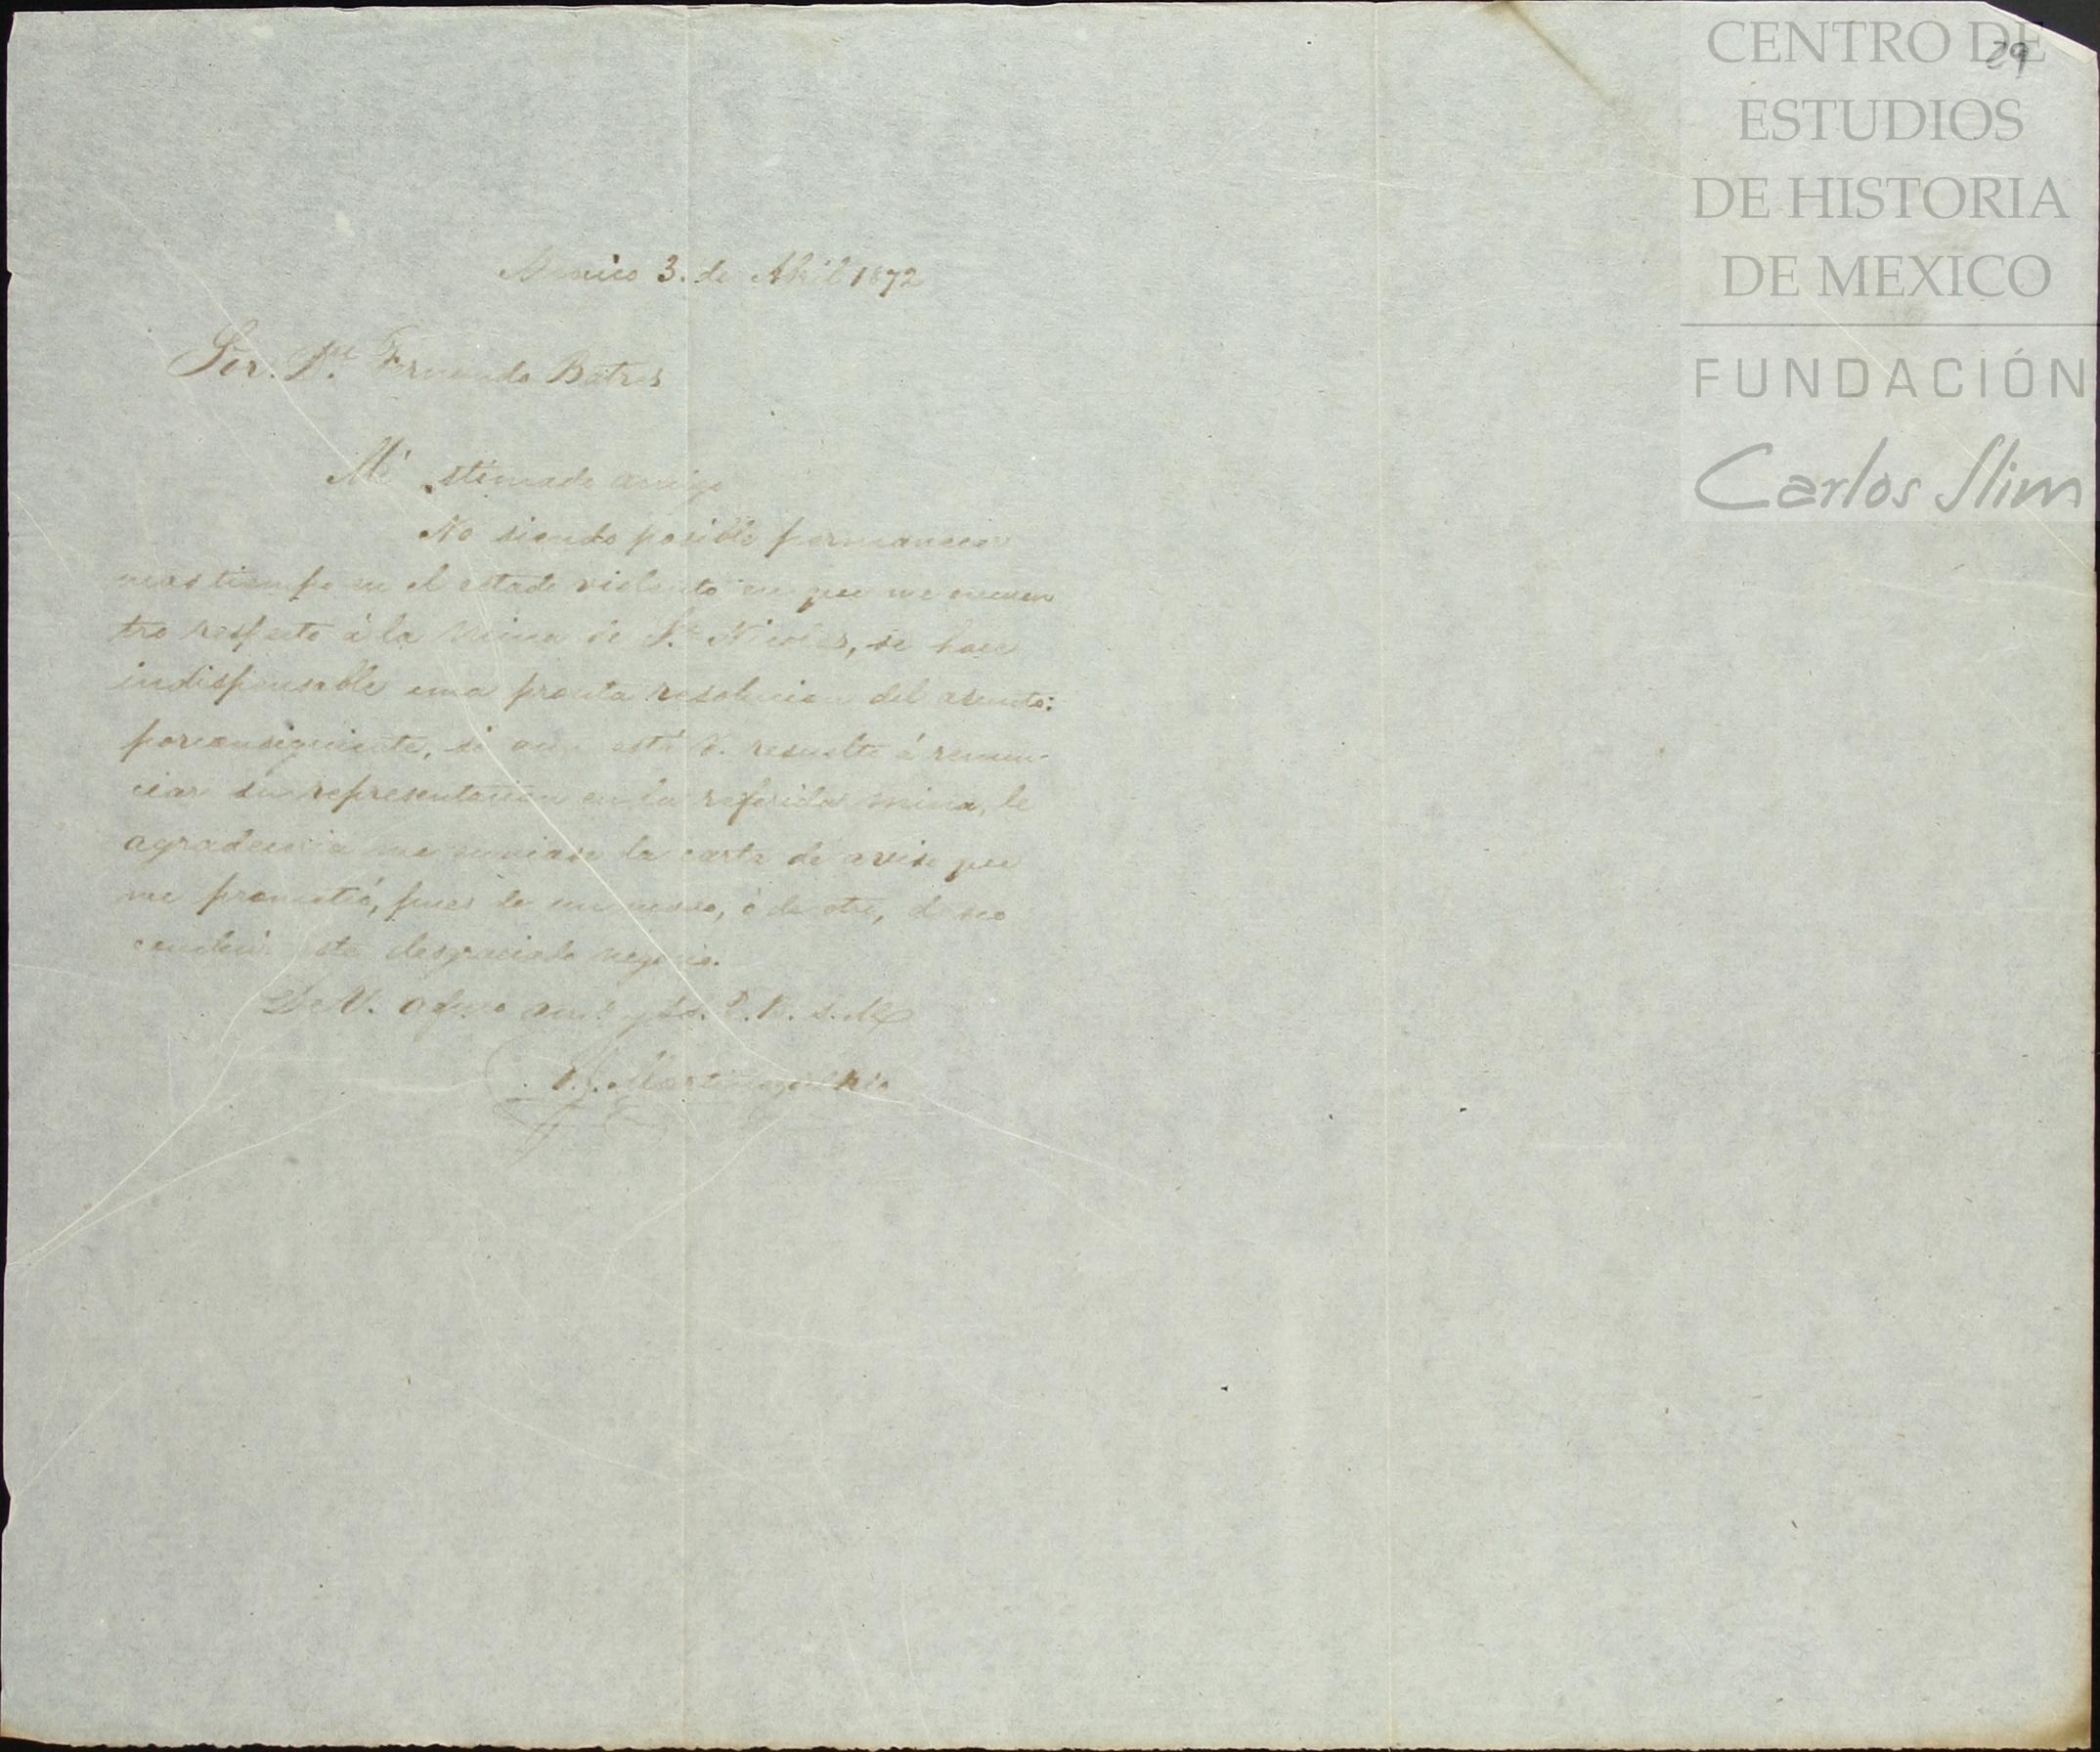 CENTRO DE
ESTUDIOS
DE HISTORIA
DE MEXICO
FUNDACIÓN
Carlos Slim
29
Mexico 3. de Abril 1872
Sor. Dn. Fernando Batres
Mi estimado amigo
No siendo posible permanecer
mas tiempo en el estado violento en que me encuen
tro respecto á la mina de Sn. Nicolas, se hace
indispensable una pronta resolucion del asunto:
porconsiguiente, si aun está V. resuelto á renun-
ciar su representacion en la referida mina, le
agradeceria me enviase la carta de aviso que
me prometió, pues de un modo, ó de otro, deseo
concluir este desgraciado negocio.
De V. afmo. amo. y S.S. Q. B. S. M.
Martinez del Rio